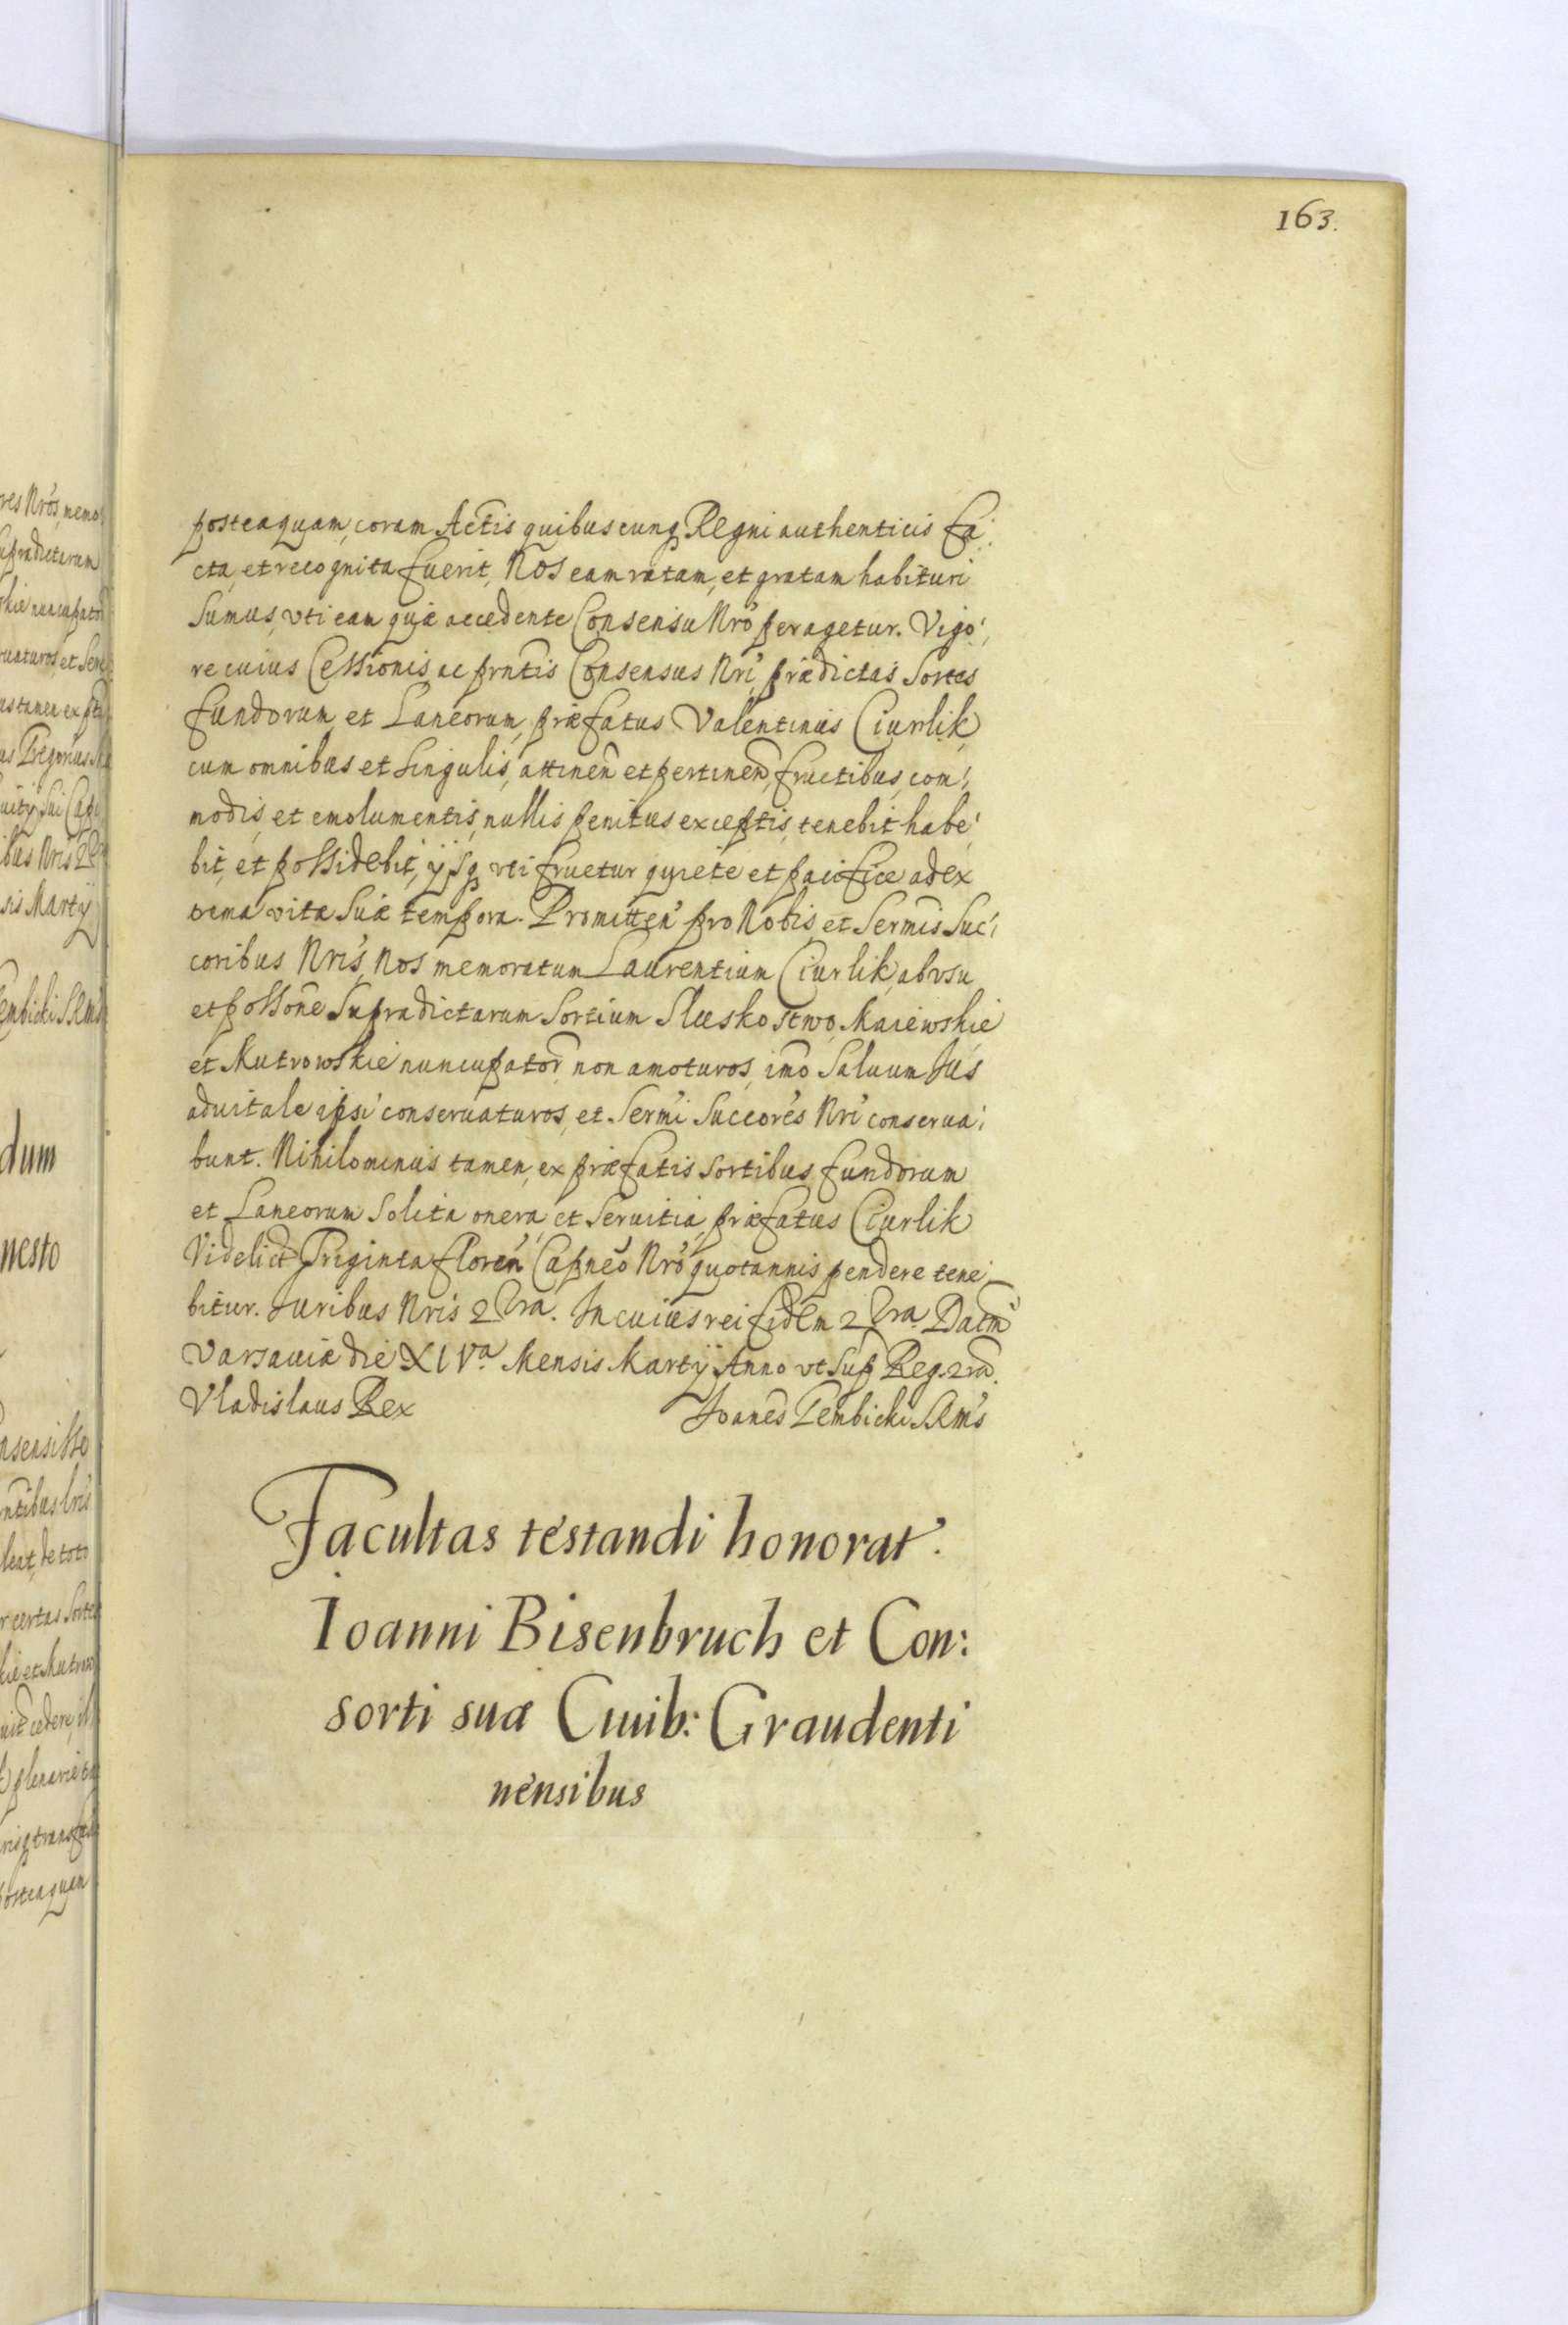 163.
posteaquam, coram Actis quibuscunq Regni authenticis fa:
cta, et recognita fuerit, Nos eam ratam, et gratam habituri
Sumus, vti eam quæ accedente Consensu Nro peragetur. Vigo:
re cuius Cessionis ac prntis Consensus Nri, prædictas Sortes
fundorum et Laneorum, præfatus Valentinus Ciurlik,
cum omnibus et singulis, attinen et pertinen, fructibus, com:
modis, et emolumentis, nullis penitus exceptis, tenebit habe:
bit, et possidebit, ijsq vti fruetur quiete et pacifice ad ex
trema vitæ suæ tempora. Promitten pro Nobis, et Sermis Suc:
coribus Nris, Nos memoratum Laurentium Ciurlik, ab vsu
et possone Supradictarum Sortium Sluskostwo, Maiewskie
et Mutrowskie nuncupator non amoturos, imo Saluum Jus
aduitale ipsi conseruaturos, et Sermi Succores Nri conserua:
bunt. Nihilominus tamen, ex præfatis sortibus fundorum
et Laneorum Solita onera, et Seruitia, præfatus Ciurlik
Videlict Triginta floren Capneo Nro quotannis pendere tene
bitur. Juribus Nris 2 Tra. In cuius rei fidem 2 Tra Datm
Varsauiæ die XIVa Mensis Martij Anno vt Sup Reg. 2ra.
Vladislaus Rex Joanes Gembicki SRMs
Facultas testandi honorat.
Ioanni Bisenbruch et Con:
sorti suæ Ciuib: Graudenti
nensibus